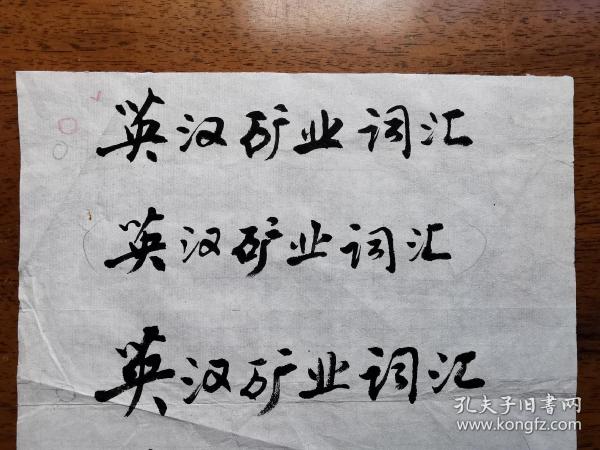 英汉矿业词汇
英汉矿业词汇
英汉矿业词汇
孔夫子旧书网
www.kongfz.com